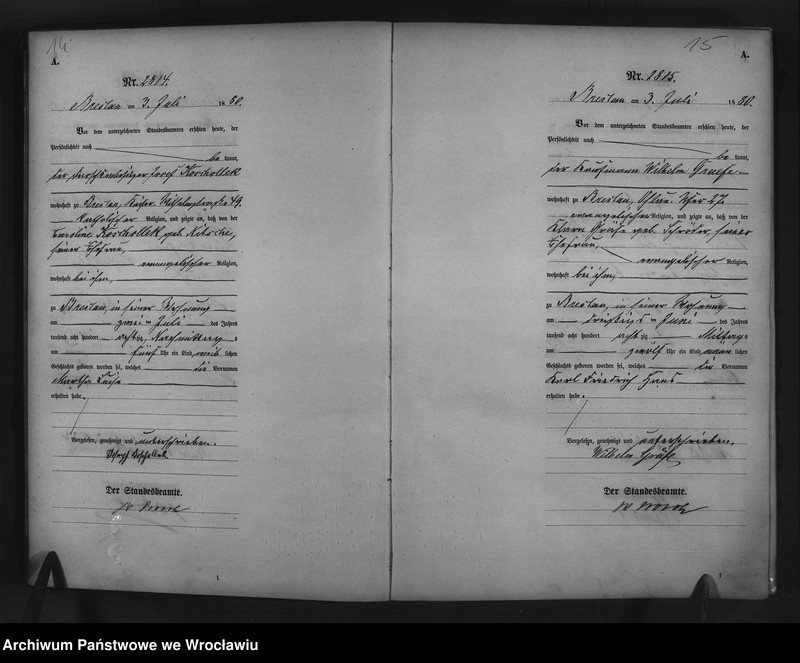 14
A.
Nr. 2814.
Breslau am 3. Juli 1880.
Vor dem unterzeichneten Standesbeamten erschien heute, der
Persönlichkeit nach
be kannt,
der Droschkenbesitzer Josef Koschollek
wohnhaft zu Breslau,
katholischer Religion, und zeigte an, daß von der
Caroline Koschollek geb. Nitsche,
seiner Ehefrau,
evangelischer Religion,
wohnhaft bei ihm,
zu Breslau, in seiner Wohnung
am zwei ten Juli des Jahres
tausend acht hundert achtzig, Nachmittags
um fünf Uhr ein Kind weib lichen
Geschlechts geboren worden sei, welches die Vornamen
Martha
erhalten habe.
Vorgelesen, genehmigt und unterschrieben.
Josef Koschollek
Der Standesbeamte.
1
15
A.
Nr. 2815.
Breslau am 3. Juli 1880.
Vor dem unterzeichneten Standesbeamten erschien heute, der
Persönlichkeit nach
be kannt,
der Kaufmann Wilhelm Graefe
wohnhaft zu Breslau, Ohlau-Ufer
evangelischer Religion, und zeigte an, daß von der
Clara Gräfe geb. Schröter, seiner
Ehefrau,
evangelischer Religion,
wohnhaft bei ihm,
zu Breslau, in seiner Wohnung
am dreißigs ten Juni des Jahres
tausend acht hundert acht zig Mittags
um zwölf Uhr ein Kind männ lichen
Geschlechts geboren worden sei, welches die Vornamen
Karl Friedrich Hans
erhalten habe.
Vorgelesen, genehmigt und unterschrieben.
Wilhelm Gräfe
Der Standesbeamte.
1
Archiwum Państwowe we Wrocławiu